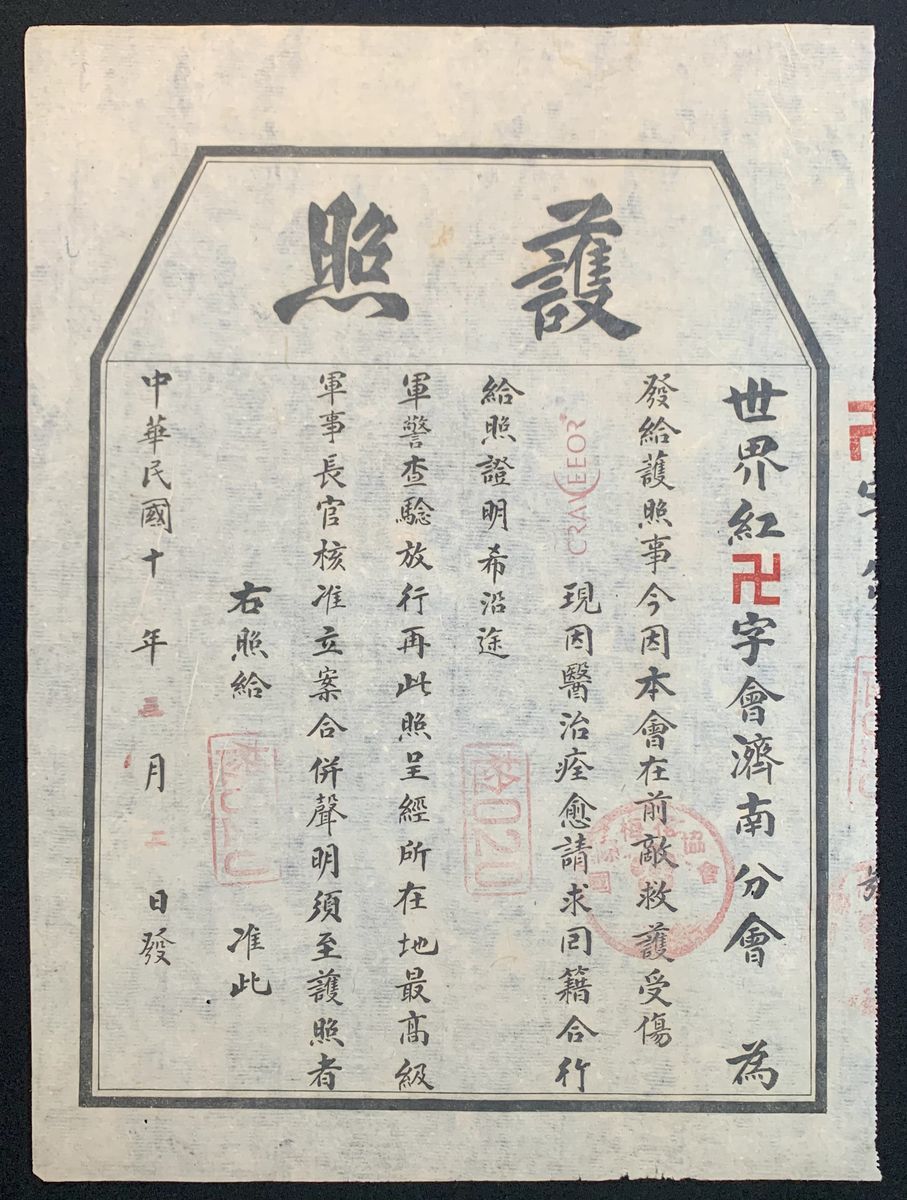 護照
世界紅卍字會濟南分會 為
發給護照事今因本會在前敵救護受傷
現因醫治痊愈請求回籍合行
給照證明希沿途
軍警查驗放行再此照呈經所在地最高級
軍事長官核准立案合併聲明須至護照者
右照給 准此
中華民國十 年 三 月 二 日發
CRAVEEOR
協會
卍字